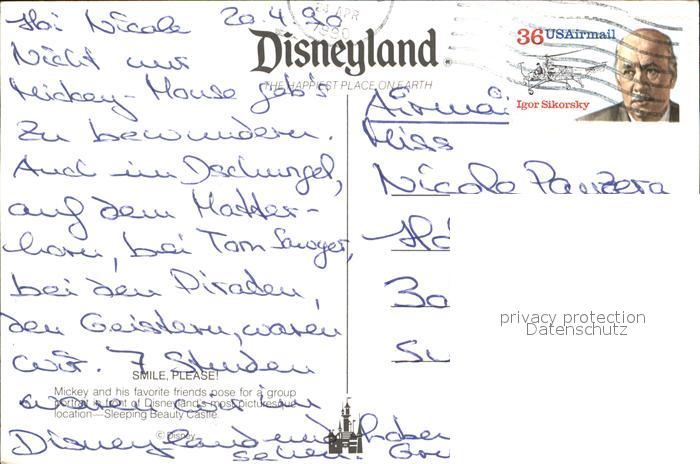 Hoi Nicole 20.4.90
Nicht nur
Mickey-Mouse gab's
zu bewundern.
Auch im Dschungel,
auf dem Matter-
horn, bei Tom Sawyer,
bei den Piraden,
den Geistern, waren
wir. 7 Stunden
waren wir im
Disneyland und haben
sehen.
24 APR
1990
Disneyland®
THE HAPPIEST PLACE ON EARTH
36 USAirmail
Igor Sikorsky
Airmai
Miss
Nicole Panzera
privacy protection
Datenschutz
SMILE, PLEASE!
Mickey and his favorite friends pose for a group
portrait in front of Disneyland's most picturesque
location—Sleeping Beauty Castle.
© Disney